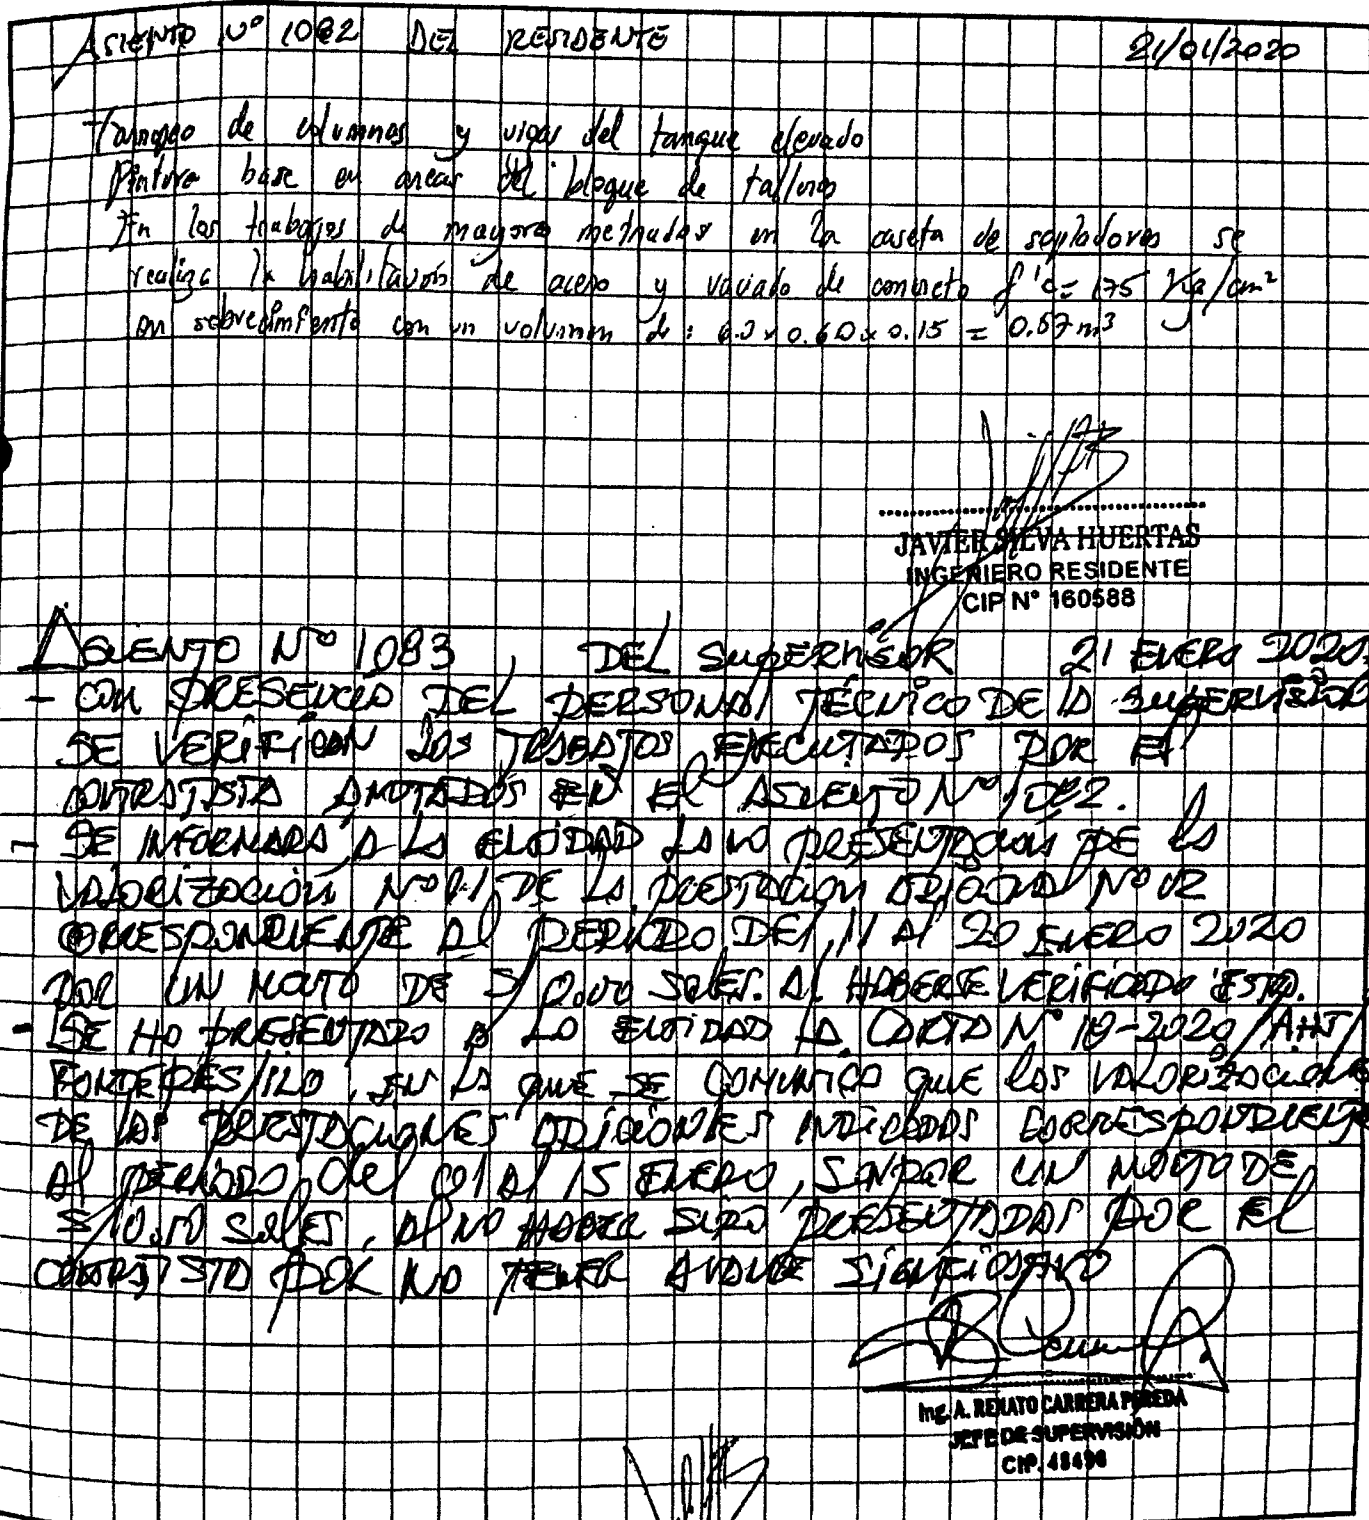 ASIENTO Nº 1082 DEL RESIDENTE 21/01/2020
Tarrajeo de columnas y vigas del tanque elevado
Pintura base en areas del bloque de talleres
En los trabajos de mayores metrados en la caseta de sopladores se
realiza la habilitación de acero y vaciado de concreto f'c= 175 Kg/cm²
en sobrecimiento con un volumen de : x 0.60 x 0.15 = 0.57 m³
JAVIER SILVA HUERTAS
INGENIERO RESIDENTE
CIP Nº 160588
ASIENTO Nº 1083, DEL SUPERVISOR 21 ENERO 2020.
- CON PRESENCIA DEL PERSONAL TÉCNICO DE LA SUPERVISIÓN
SE VERIFICAN LOS TRABAJOS EJECUTADOS POR EL
CONTRATISTA ANOTADOS EN EL ASIENTO Nº 1082.
- SE INFORMARÁ A LA ENTIDAD LA NO PRESENTACIÓN DE LA
VALORIZACIÓN Nº 01 DE LA PRESTACIÓN ADICIONAL Nº 02
CORRESPONDIENTE AL PERIODO DEL 11 AL 20 ENERO 2020
POR UN MONTO DE S/ 0.00 SOLES. AL HABERSE VERIFICADO ESTO.
- SE HA PRESENTADO A LA ENTIDAD LA CARTA Nº 18-2020/AHJ/
EN LA QUE SE COMUNICA QUE LAS VALORIZACIONES
DE LAS PRESTACIONES ADICIONALES INDICADAS CORRESPONDIENTE
AL PERIODO DEL 01 AL 15 ENERO, SON POR UN MONTO DE
S/ 0.00 SOLES, AL NO HABER SIDO PRESENTADAS POR EL
CONTRATISTA POR NO TENER AVANCE SIGNIFICATIVO
Ing. A. RENATO CARRERA PEREDA
JEFE DE SUPERVISIÓN
CIP. 48496